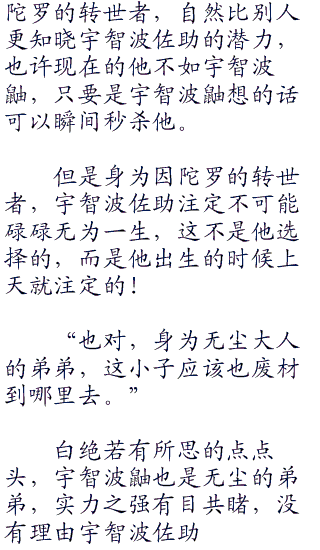 陀罗的转世者，自然比别人
更知晓宇智波佐助的潜力，
也许现在的他不如宇智波
鼬，只要是宇智波鼬想的话
可以瞬间秒杀他。
但是身为因陀罗的转世
者，宇智波佐助注定不可能
碌碌无为一生，这不是他选
择的，而是他出生的时候上
天就注定的！
“也对，身为无尘大人
的弟弟，这小子应该也废材
到哪里去。”
白绝若有所思的点点
头，宇智波鼬也是无尘的弟
弟，实力之强有目共睹，没
有理由宇智波佐助